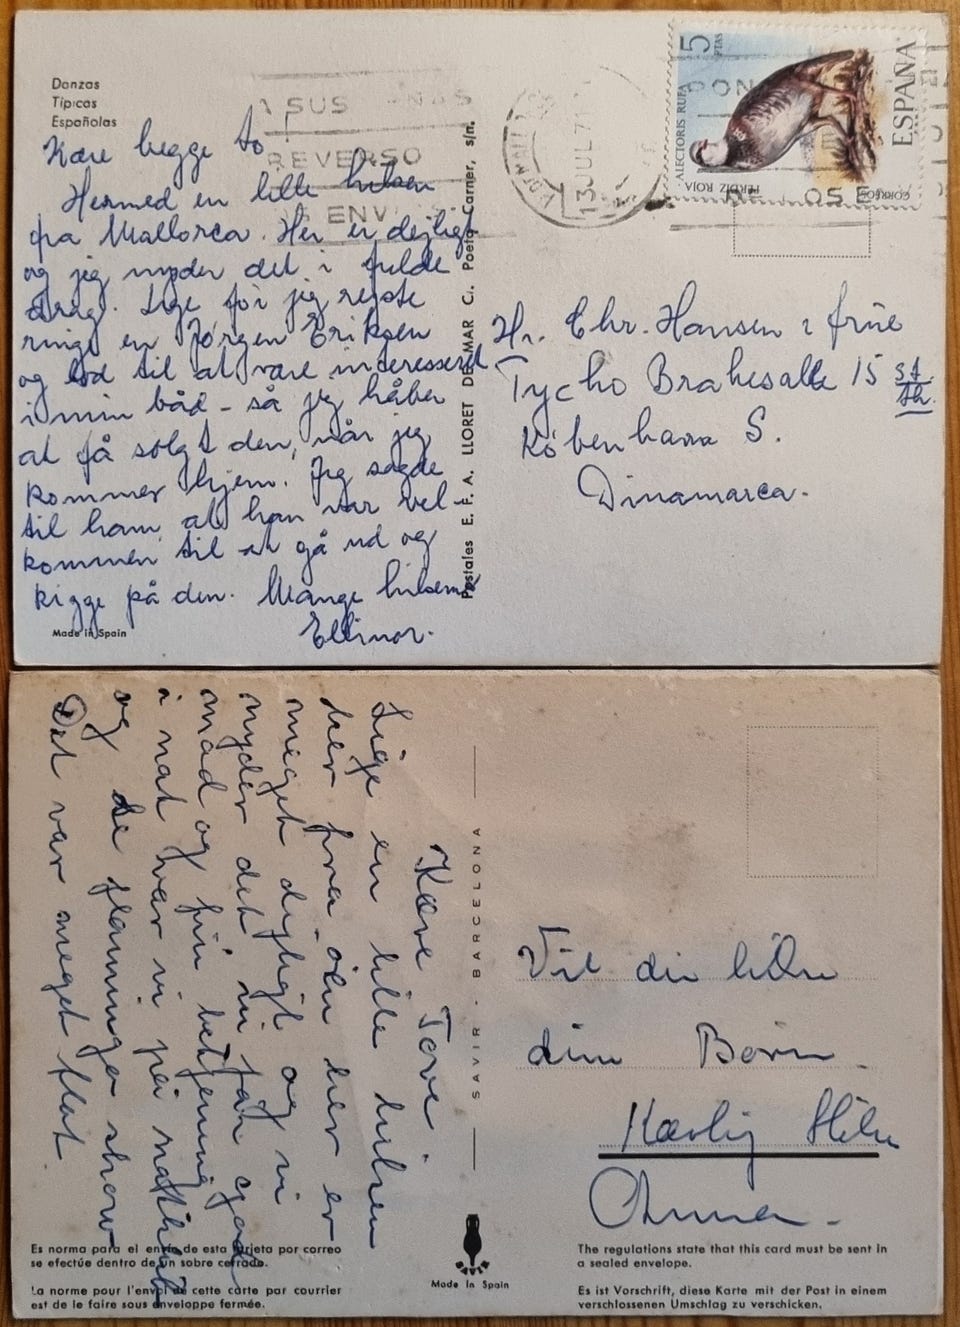 Danzas
Típicas
Españolas
A SUS
REVERSO
ENV
13 JUL 71
5
PTAS
ALECTORIS RUFA
PERDIZ ROJA
ESPAÑA
CORREOS
Kære begge to
Hermed en lille hilsen
fra Mallorca. Her er dejligt
og jeg nyder det i fulde
drag. Lige før jeg rejste
ringe en Jørgen Eriksen
og lod til at være interesseret
i min båd - så jeg håber
at få solgt den, når jeg
kommer hjem. Jeg sagde
til ham, at han var vel-
kommen til at gå ud og
kigge på den. Mange hilsener
Ellinor.
Made in Spain
Postales E. F. A. LLORET DE MAR C. Poeta Carner, s/n.
Hr. Chr. Hansen & frue
Tycho Brahesalle 15 st.
th.
København S.
Dinamarca.
Kære Tove
Lige en lille hilsen
her fra øen her er
meget dejligt og vi
nyder det vi får god
mad og fin betjening
i nat var vi på natklub
og se flamingo show
Det var meget flot
SAVIR - BARCELONA
Vil du hilse
dine Børn
Kærlig Hilsen
Es norma para el envío de esta tarjeta por correo
se efectúe dentro de un sobre cerrado.
La norme pour l'envoi de cette carte par courrier
est de le faire sous enveloppe fermée.
SAVIR
Made in Spain
The regulations state that this card must be sent in
a sealed envelope.
Es ist Vorschrift, diese Karte mit der Post in einem
verschlossenen Umschlag zu verschicken.